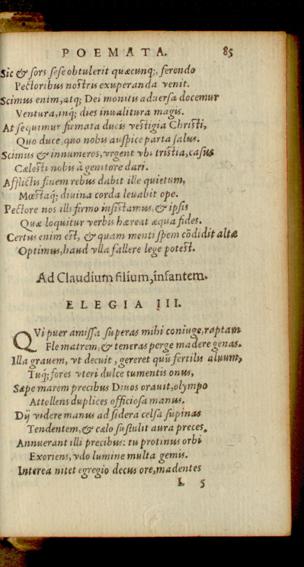 POEMATA. 85
Sic & sors sese obtulerit quæcunq;, ferendo
Pectoribus nostris exuperanda venit.
Scimus enim, atq; Dei monitu aduersa docemur
Ventura, inq; dies inualitura magis.
At sequimur firmata ducis vestigia Christi,
Quo duce, quo nobis auspice parta salus.
Scimus & innumeros, vrgent vbi tristia, casus
Cælesti nobis à genitore dari.
Afflictis finem rebus dabit ille quietum,
Mœstaq; diuina corda leuabit ope.
Pectore nos illi firmo insistamus, & ipsis
Quæ loquitur verbis hæreat æqua fides.
Certus enim est, & quam menti spem cōdidit altæ
Optimus, haud vlla fallere lege potest.
Ad Claudium filium, infantem.
ELEGIA III.
QVi puer amissa superas mihi coniuge, raptam
Fle matrem, & teneras perge madere genas.
Illa grauem, vt decuit, gereret quū fertilis aluum,
Tuq; fores vteri dulce tumentis onus,
Sæpe marem precibus Diuos orauit, olympo
Attollens duplices officiosa manus.
Dij videre manus ad sidera celsa supinas
Tendentem, & cælo sustulit aura preces,
Annuerant illi precibus: tu protinus orbi
Exoriens, vdo lumine multa gemis.
Interea nitet egregio decus ore, madentes
L 5